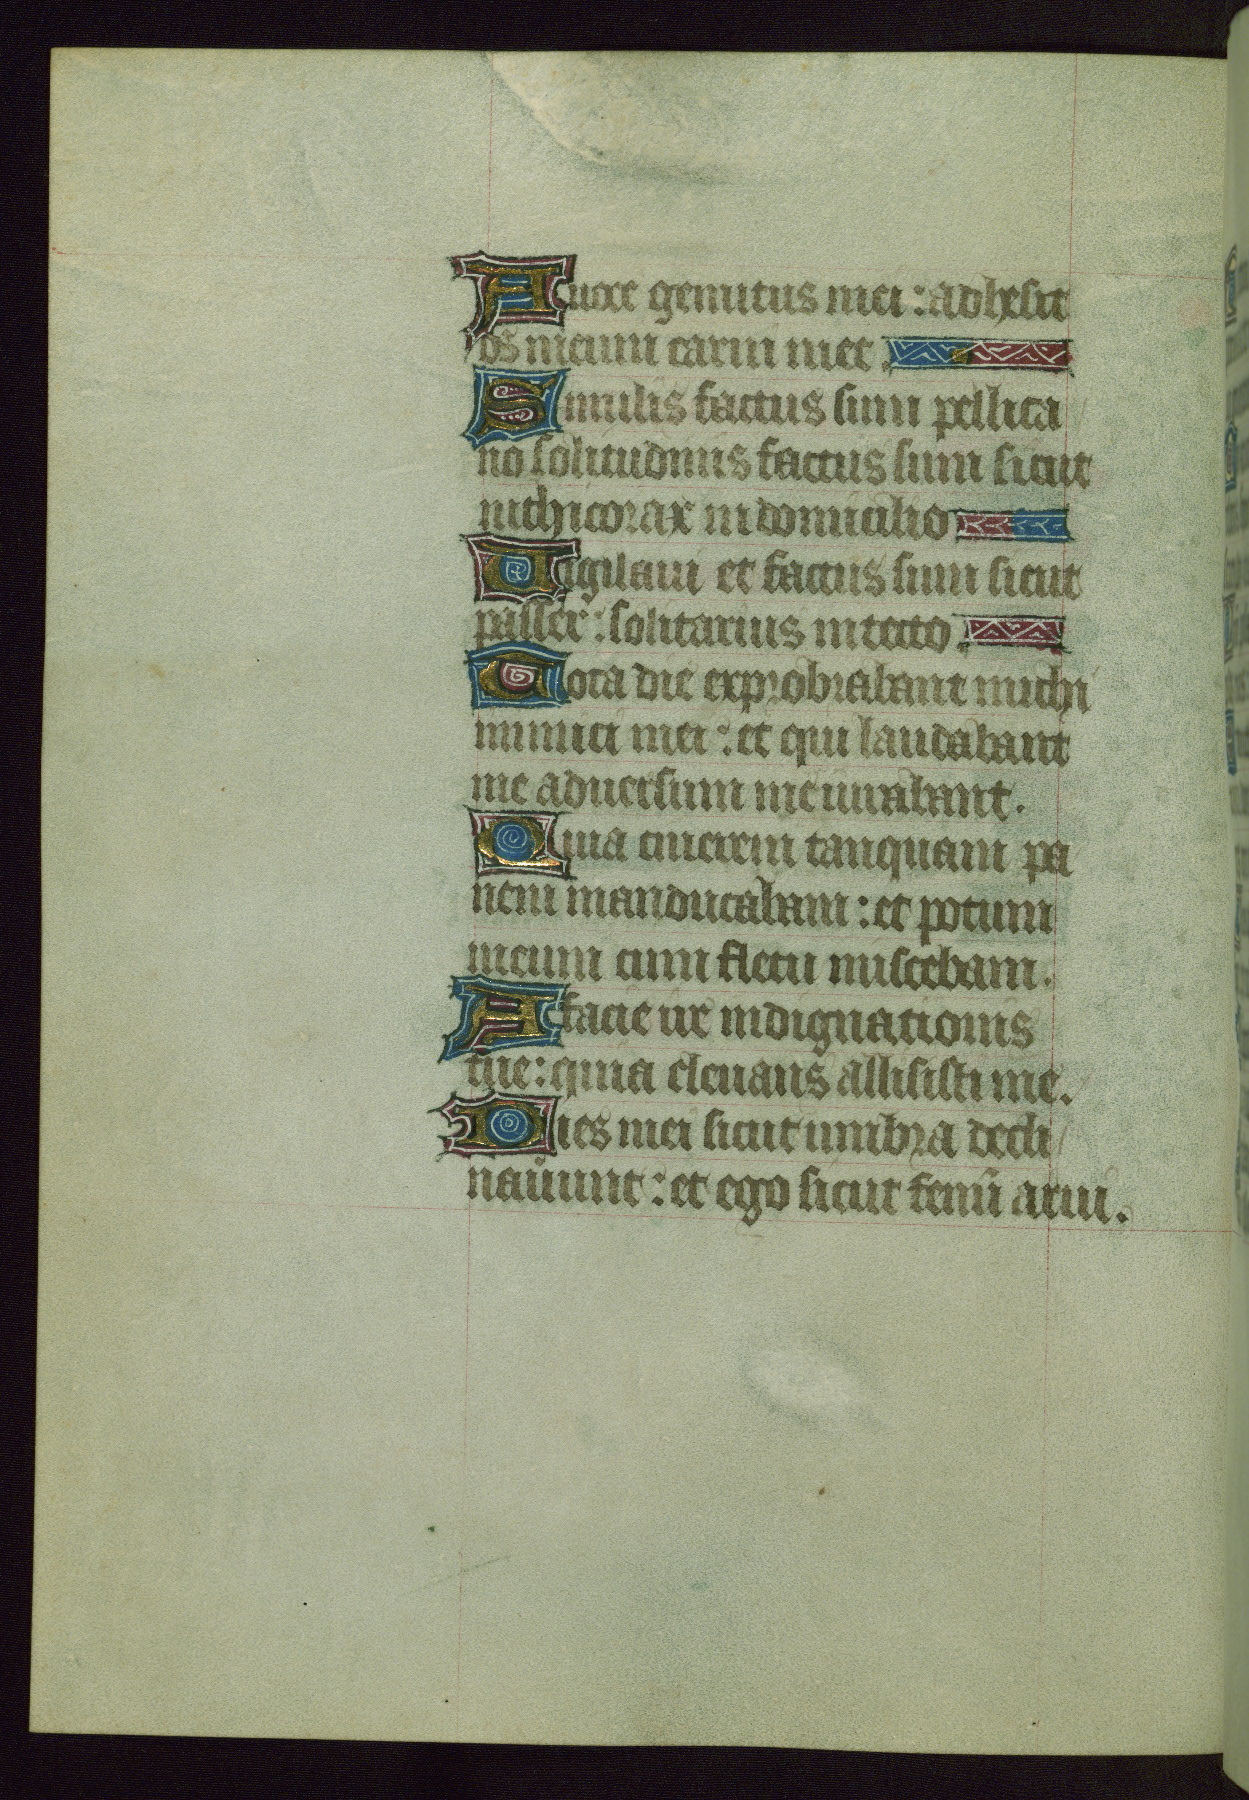 A uoce gemitus mei : adhesit
os meum carni mee .
Similis factus sum pellica
no solitudinis factus sum sicut
nithicorax in domicilio
Uigilaui et factus sum sicut
passer : solitarius in tecto .
Tota die exprobrabant michi
inimici mei : et qui laudabant
me aduersum me iurabant .
Quia cinerem tanquam pa
nem manducabam : et potum
meum cum fletu miscebam .
A facie ire indignationis
tue : quia eleuans allisisti me .
Dies mei sicut umbra decli
nauũunt : et ego sicut fenũ arui .